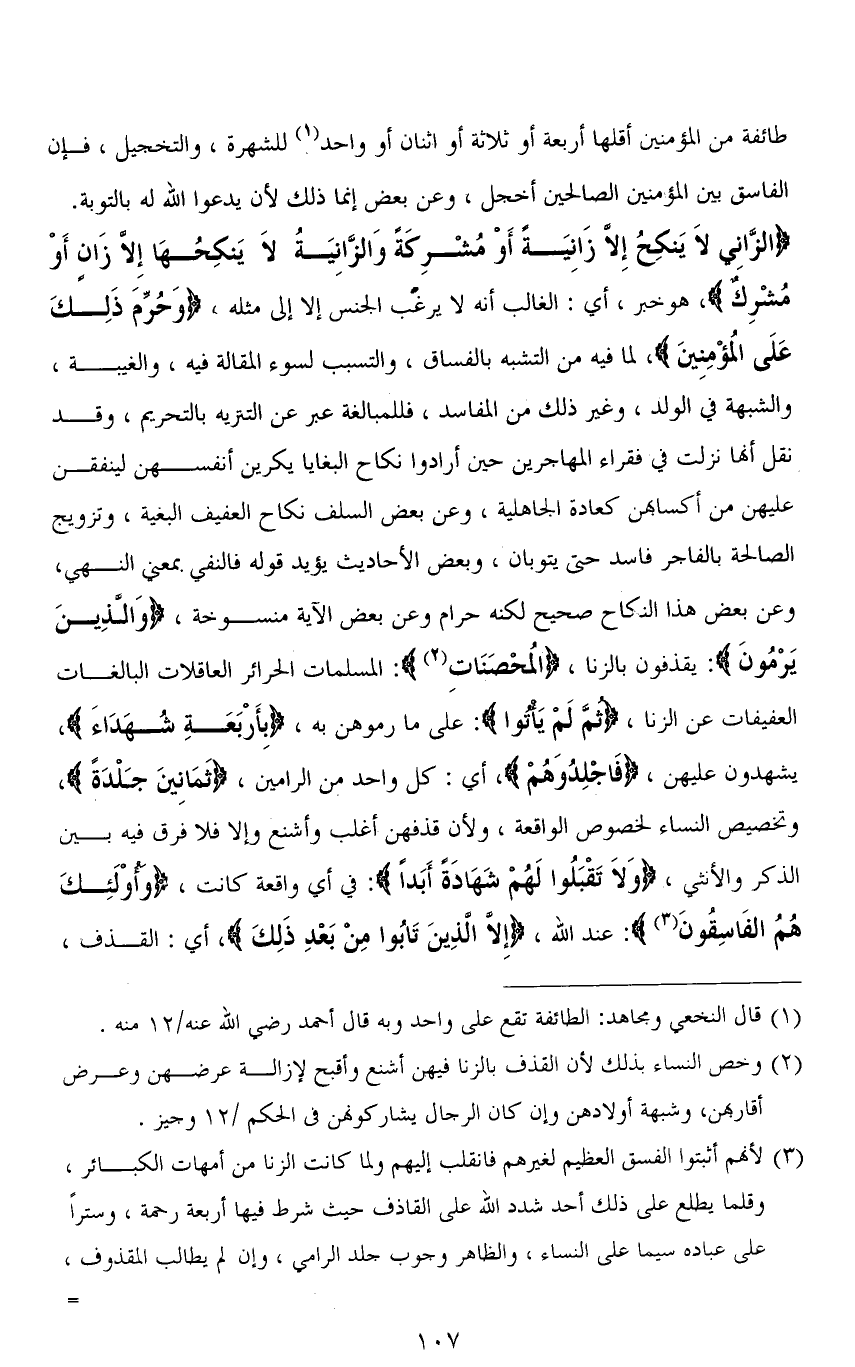 طائفة من المؤمنين أقلها أربعة أو ثلاثة أو اثنان أو واحد(١) للشهرة ، والتخجيل ، فإن
الفاسق بين المؤمنين الصالحين أخجل ، وعن بعض إنما ذلك لأن يدعوا الله له بالتوبة.
﴿الزَّانِي لاَ يَنكِحُ إِلاَّ زَانِيَةً أَوْ مُشْرِكَةً وَالزَّانِيَةُ لاَ يَنكِحُهَا إِلاَّ زَانٍ أَوْ
مُشْرِكٌ﴾، هو خبر ، أي : الغالب أنه لا يرغَب الجنس إلا إلى مثله ، ﴿وَحُرِّمَ ذَلِكَ
عَلَى الُمؤْمِنِينَ﴾، لما فيه من التشبه بالفساق ، والتسبب لسوء المقالة فيه ، والغيبة ،
والشبهة في الولد ، وغير ذلك من المفاسد ، فللمبالغة عبر عن التنزيه بالتحريم ، وقد
نقل أنها نزلت في فقراء المهاجرين حين أرادوا نكاح البغايا يكرين أنفسهن لينفقن
عليهن من أكسابهن كعادة الجاهلية ، وعن بعض السلف نكاح العفيف البغية ، وتزويج
الصالحة بالفاجر فاسد حتى يتوبان ، وبعض الأحاديث يؤيد قوله فالنفي بمعني النهي،
وعن بعض هذا النكاح صحيح لكنه حرام وعن بعض الآية منسوخة ، ﴿وَالَّذِينَ
يَرْمُونَ﴾: يقذفون بالزنا ، ﴿الُمحْصَنَاتِ(٢)﴾: المسلمات الحرائر العاقلات البالغات
العفيفات عن الزنا ، ﴿ثُمَّ لَمْ يَأْتُوا﴾: على ما رموهن به ، ﴿بِأَرْبَعَةِ شُهَدَاءَ﴾،
يشهدون عليهن ، ﴿فَاجْلِدُوهُمْ﴾، أي : كل واحد من الرامين ، ﴿ثَمَانِينَ جَلْدَةً﴾،
وتخصيص النساء لخصوص الواقعة ، ولأن قذفهن أغلب وأشنع وإلا فلا فرق فيه بين
الذكر والأنثي ، ﴿وَلاَ تَقْبَلُوا لَهُمْ شَهَادَةً أَبَداً﴾: في أي واقعة كانت ، ﴿وَأُوْلَئِكَ
هُمُ الفَاسِقُونَ(٣)﴾: عند الله ، ﴿إِلاَّ الَّذِينَ تَابُوا مِنْ بَعْدِ ذَلِكَ﴾، أي : القذف ،
(١) قال النخعي ومجاهد: الطائفة تقع على واحد وبه قال أحمد رضي الله عنه/١٢ منه .
(٢) وخص النساء بذلك لأن القذف بالزنا فيهن أشنع وأقبح لإزالة عرضهن وعرض
أقاربهن، وشبهة أولادهن وإن كان الرجال يشاركونهن فى الحكم /١٢ وجيز .
(٣) لأنهم أثبتوا الفسق العظيم لغيرهم فانقلب إليهم ولما كانت الزنا من أمهات الكبائر ،
وقلما يطلع على ذلك أحد شدد الله على القاذف حيث شرط فيها أربعة رحمة ، وستراً
على عباده سيما على النساء ، والظاهر وجوب جلد الرامي ، وإن لم يطالب المقذوف ،
=
١٠٧